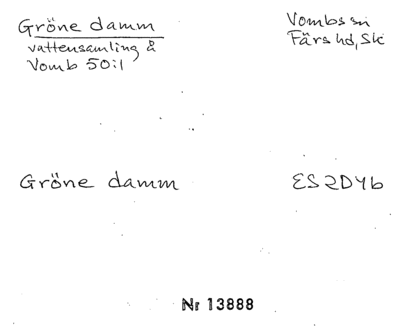 Gröne damm
vattensamling å
Vomb 50:1
Vombs sn
Färs hd, Sk
Gröne damm
ES2D4b
Nr 13888